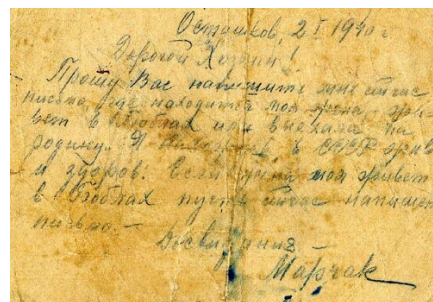 Осташков, 2 I 1940 г
Дорогой Хозяин!
Прошу Вас напишите мне сейчас
письмо, где находится моя жена, жи-
вет в Кобылах или выехала на
родину. Я нахожусь в СССР жив
и здоров. Если жена моя живет
в пусть сейчас напишет
письмо. —
Досвидания
Марчак